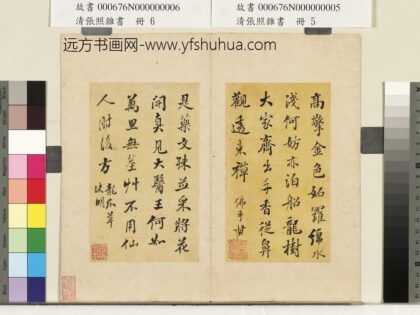 故書 000676N000000006
清張照雜書 冊 6
故書 000676N000000005
清張照雜書 冊 5
远方书画网-www.yfshuhua.com
高擎金色妬羅綿水
淺何妨亦泊船龍樹
大家齊出手香從鼻
觀透東禪 佛手柑
是藥文殊並采將花
開真見大醫王何如
萬里無葦艸不用仙
人肘後方 龍爪草
決明